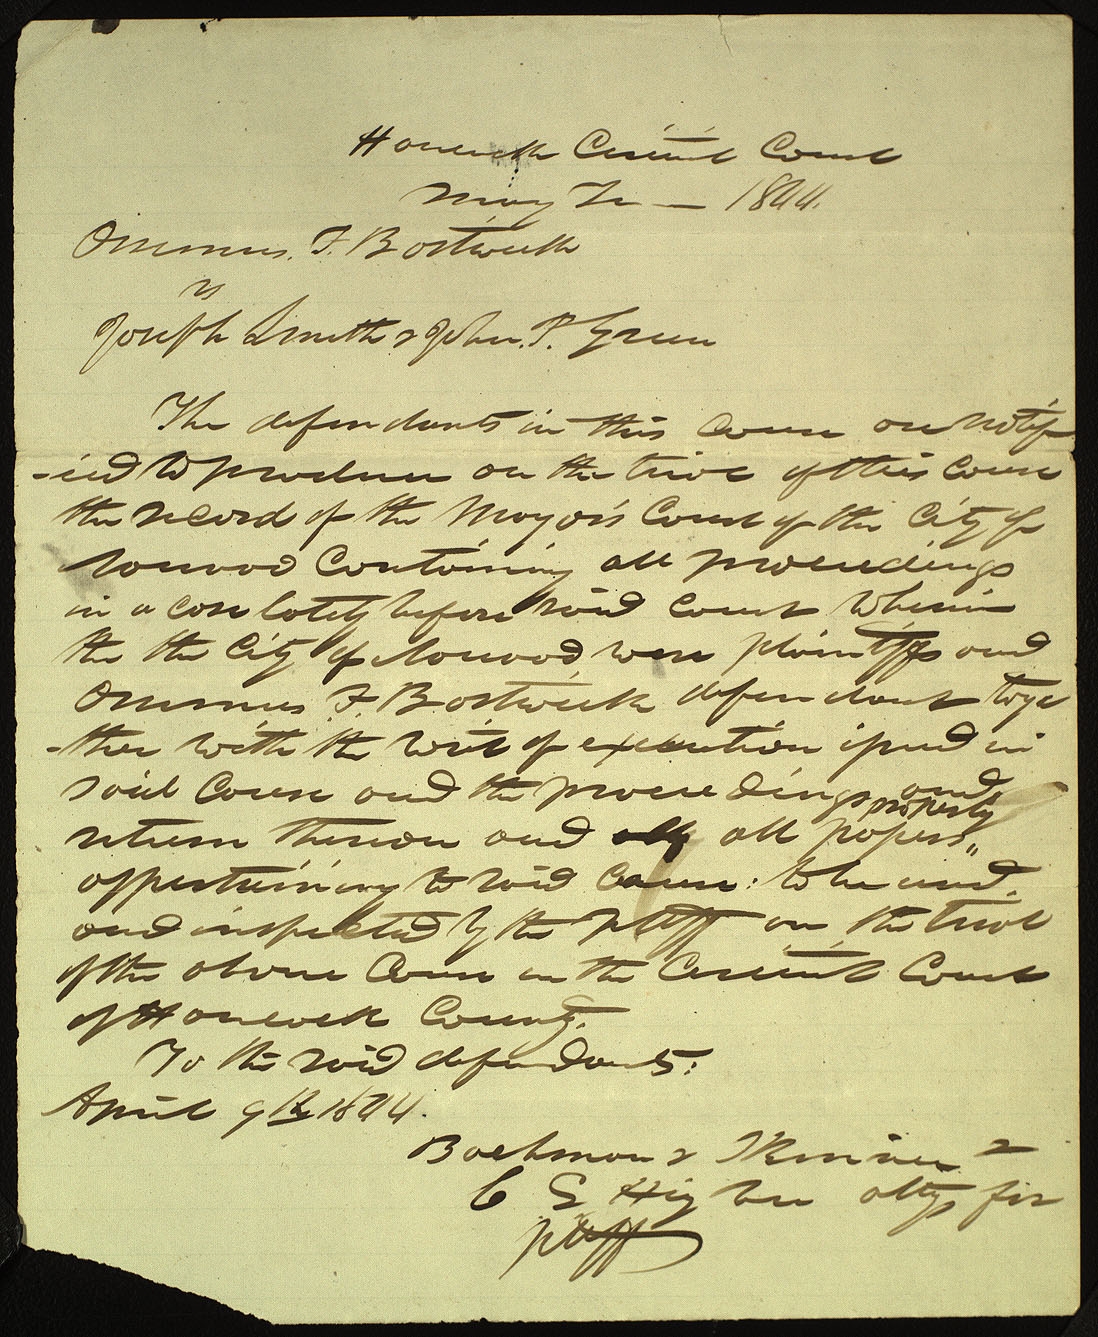 Hancock Circuit Court
May Te — 1844.
Orsimus. F. Bostwick
vs
Joseph Smith & John. P. Green
The defendants in this Cause are notif
-ied to produce on the trial of this Cause
the record of the Mayor's Court of the City of
Nauvoo Containing all proceedings
in a case lately before said Court wherein
the the City of Nauvoo were plaintiffs and
Orsimus F. Bostwick defendant toge
-ther with the writ of execution issued in
said Cause and the proceedings and
return thereon and all papers properly
appertaining to said Cause: to be used.
and inspected by the pltff on the trial
of the above Cause in the Circuit Court
of Hancock County.
To the said defendants:
April 9th 1844.
Bachman & Skinner &
C S Higbee attys for
pltff